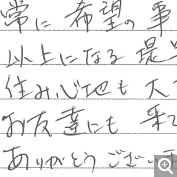 常に希望の事
以上になる最
住み心地も大
お友達にも来て
ありがとうござい